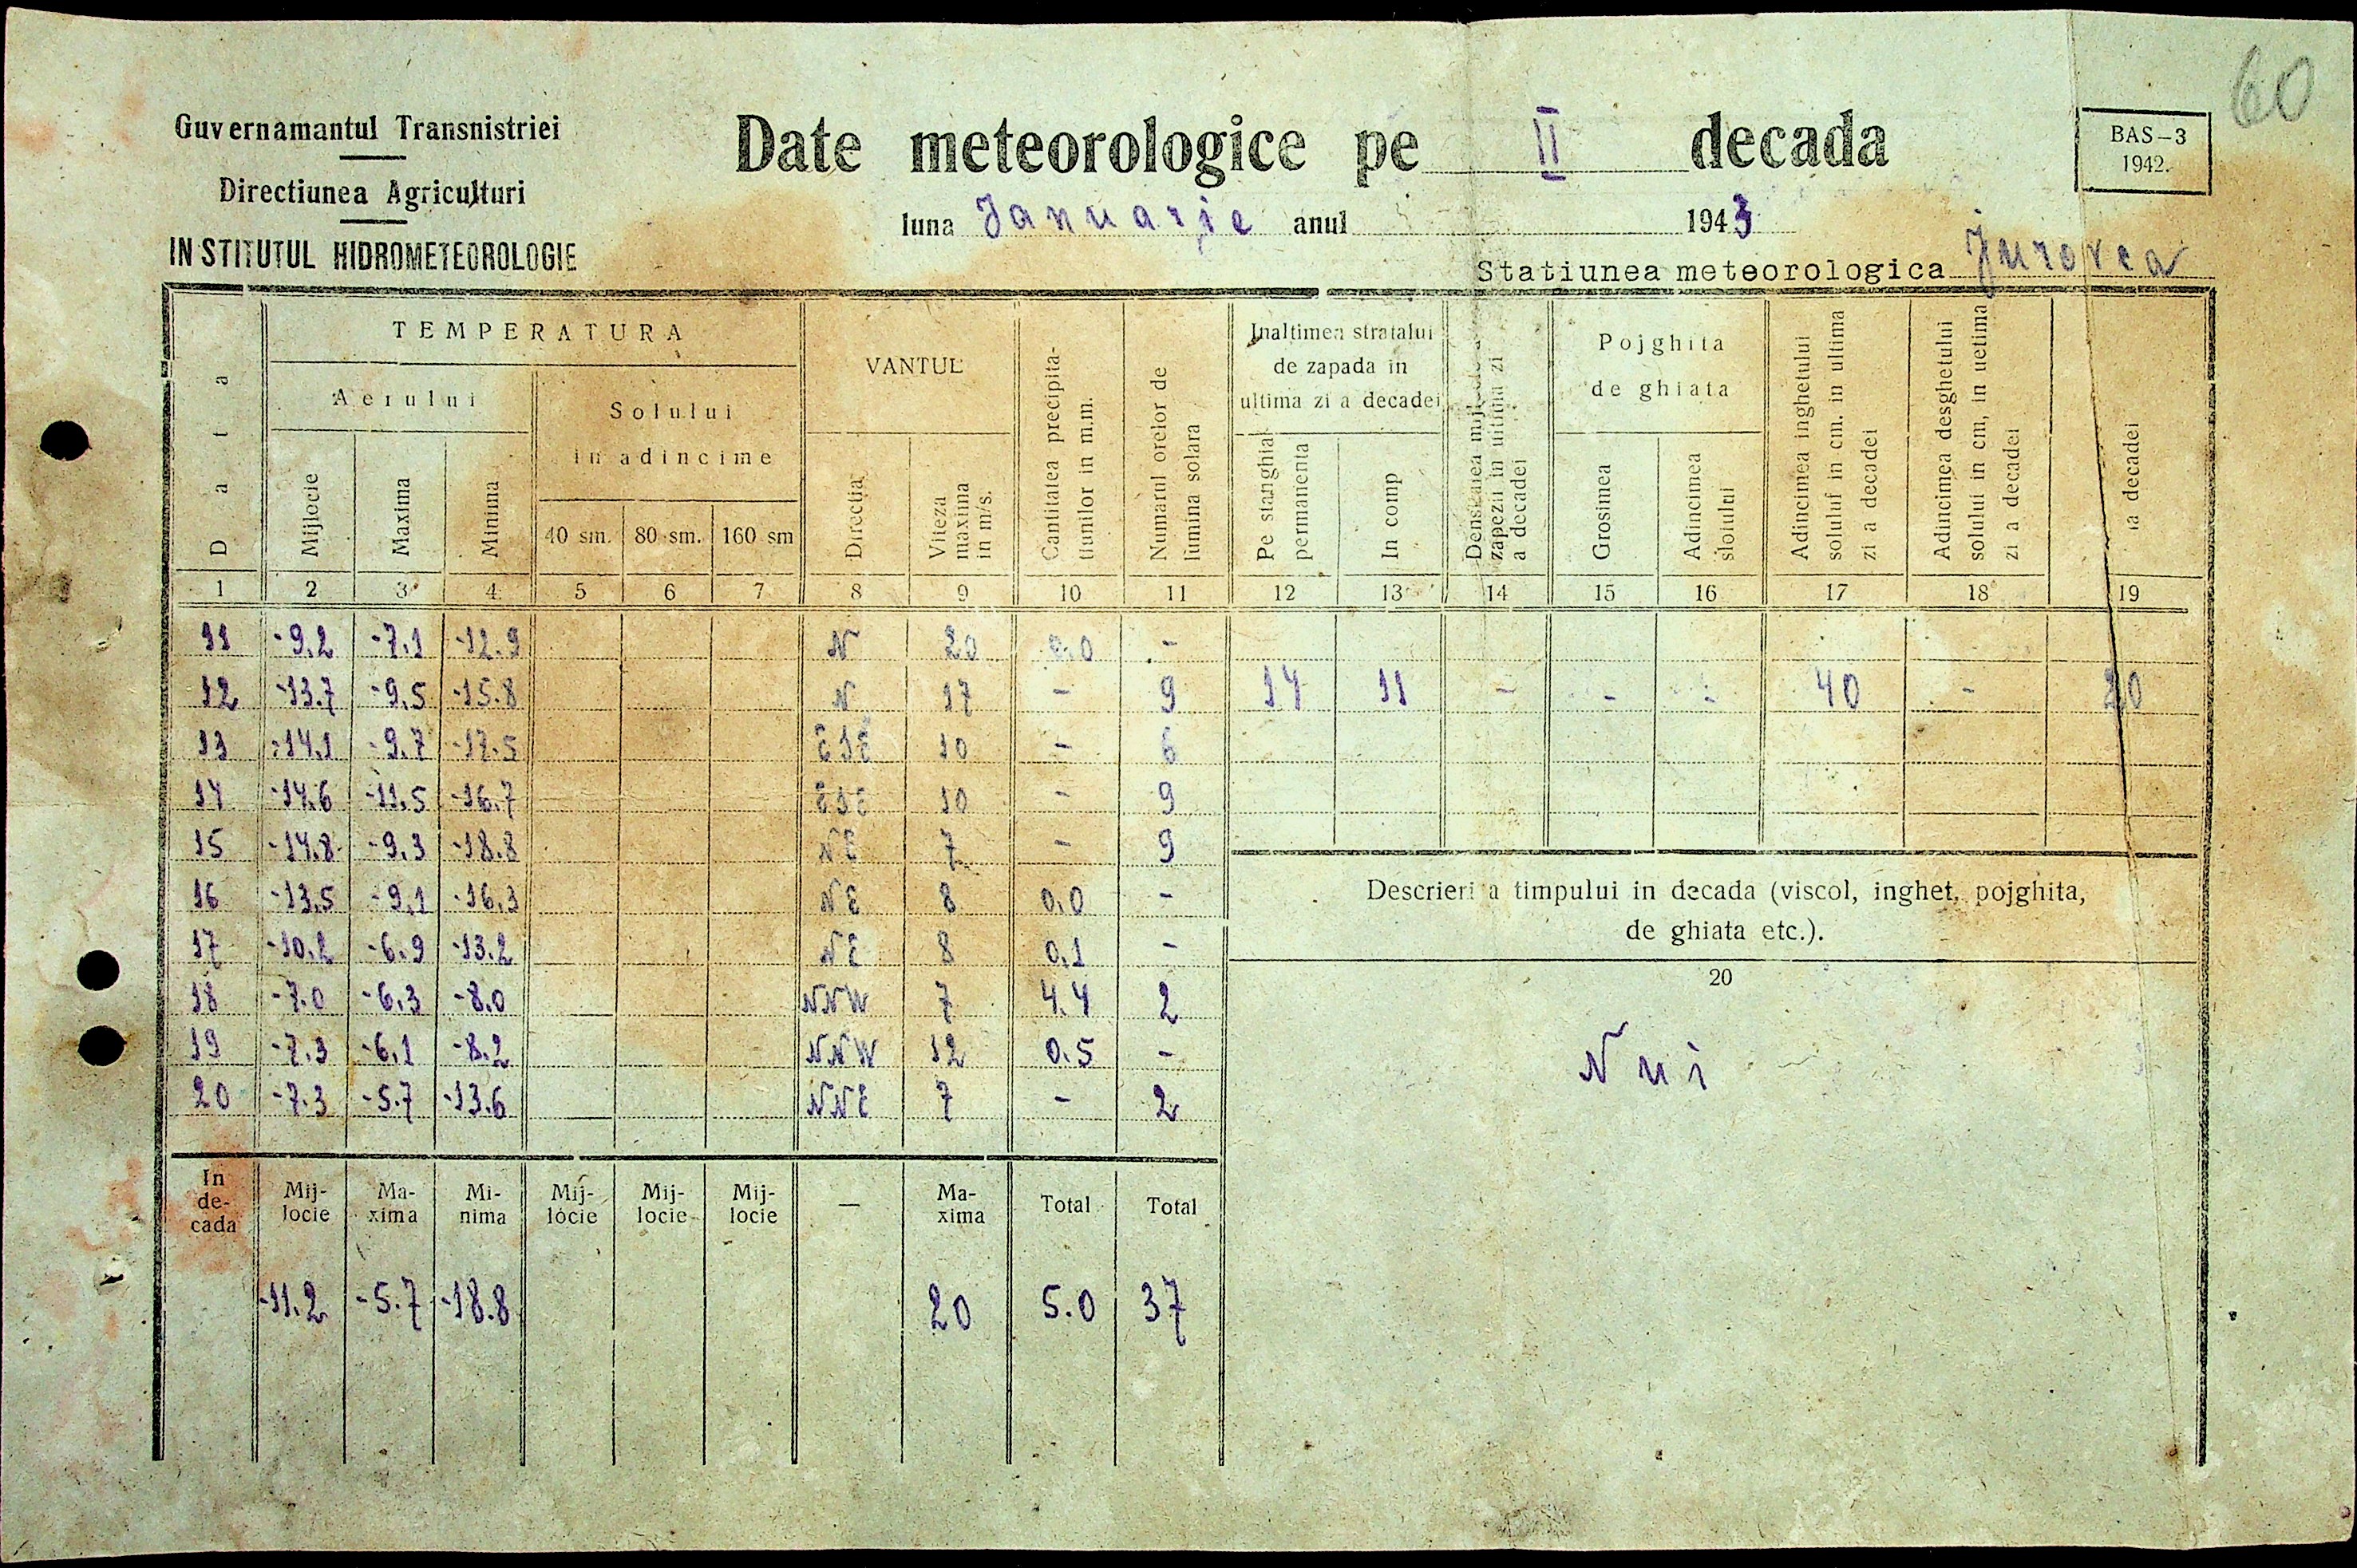 60
Guvernamantul Transnistriei
Directiunea Agriculturi
INSTITUTUL HIDROMETEOROLOGIE
Date meteorologice pe II decada
luna Januarie anul 1943
BAS-3
1942.
Statiunea meteorologica
Data
TEMPERATURA
Aerului
Mijlocie
Maxima
Minima
Solului
in adincime
40 sm. 80 sm. 160 sm
VANTUL
Directia
Viteza maxima in m/s.
Cantitatea precipita-
tiunilor in m.m.
Numarul orelor de
lumina solara
Inaltimea stratalui
de zapada in
ultima zi a decadei
Pe stanghia
permanenta
In comp
zapezii in ultima zi
a decadei
Pojghita
de ghiata
Grosimea
Adincimea
sloiului
Adincimea inghetului
solului in cm. in ultima
zi a decadei
Adincimea desghetului
solului in cm, in uetima
zi a decadei
la decadei
1 2 3 4 5 6 7 8 9 10 11 12 13 14 15 16 17 18 19
11 -9.2 -7.1 -12.9 N 20 0.0 -
12 -13.7 -9.5 -15.8 N 17 - 9 14 11 - - - 40 - 20
13 -14.1 -9.7 -17.5 ESE 10 - 6
14 -14.6 -11.5 -16.7 ESE 10 - 9
15 -14.8 -9.3 -18.8 NE 7 - 9
16 -13.5 -9.1 -16.3 NE 8 0.0 -
17 -10.2 -6.9 -13.2 NE 8 0.1 -
18 -7.0 -6.3 -8.0 NNW 7 4.4 2
19 -7.3 -6.1 -8.2 NNW 12 0.5 -
20 -7.3 -5.7 -13.6 NNE 7 - 2
In
de-
cada
Mij-
locie
Ma-
xima
Mi-
nima
Mij-
locie
Mij-
locie
Mij-
locie
—
Ma-
xima
Total
Total
-11.2 -5.7 -18.8 20 5.0 37
Descrieri a timpului in decada (viscol, inghet, pojghita,
de ghiata etc.).
20
Nui